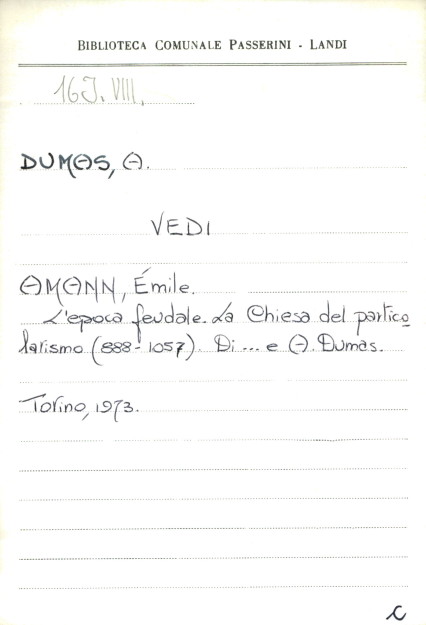 BIBLIOTECA COMUNALE PASSERINI - LANDI
16J. VIII.
DUMAS, A.
VEDI
AMANN, Émile.
L'epoca feudale. La Chiesa del partico
larismo (888-1057). Di ... e A. Dumas.
Torino, 1973.
C